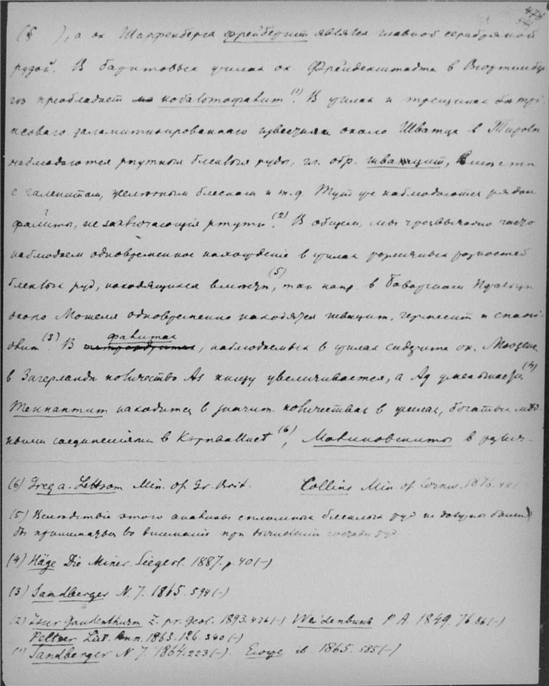 474
( ), а ок Шапфенберга фрейбергит является главной серебряной
рудой. В баритовых жилах ок Фрейденштадта в Вюртембер
ге преобладает кобальтофалит.(1) В жилах и трещинах битуми
около Шватца в Тироле
наблюдаются ртутные блеклые руды, гл. обр. швацит, вместе
с галенитом, железным блеском и т.д. Тут же наблюдаются и
, не заключающие ртути.(2) В общем, мы чрезвычайно часто
наблюдаем одновременное нахождение в жилах различных разностей
блеклых руд, находящихся вместе,(5) так напр в Баварском
около Мошеля одновременно находятся швацит, и
(3) В , наблюдаемых в жилах сидерита ок. Мюзена
в Зигерланде количество As книзу увеличивается, а Ag уменьшается(4)
Теннантит находится в значит. количествах в жилах, богатых мед
ными соединениями в Корнваллисе(6), Малиновскиты в
(6) Greg a. Lettsom Min. of Gr. Brit. Collins Min of Cornw. 1876.
(5) Вследствие этого анализы сплошных блеклых руд не должны были
бы приниматься во внимание при вычислении состава руд.
(4) Häge Die Miner. Siegerl. 1887. p. 40 (–)
(3) Sandberger N J. 1865. 594 (–)
(2) Z. pr. Geol. 1893. (–) Weidenbusch P. A. 1849. 76 86 (–)
Peltzer Lieb. Ann. 1863. 126 340 (–)
(1) Sandberger N J. 1864. 223 (–). ib 1865. 585 (–)